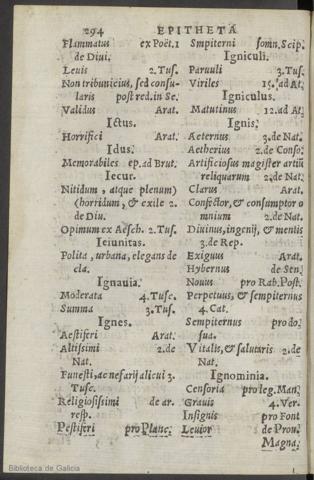 294 EPITHETA
Flammatus ex Poët. 1
de Diui.
Leuis 2. Tus.
Non tribunicius, sed consu-
laris post red. in Se.
Validus Arat.
Ictus.
Horrifici Arat.
Idus.
Memorabiles ep. ad Brut.
Iecur.
Nitidum, atque plenum)
(horridum, & exile 2.
de Diu.
Opimum ex Aesch. 2. Tus.
Ieiunitas.
Polita, urbana, elegans de
cla.
Ignauia.
Moderata 4. Tusc.
Summa 3. Tus.
Ignes.
Aestiferi Arat.
Altissimi 2. de
Nat.
Funesti, ac nefarij alicui 3.
Tusc.
Religiosissimi de ar.
resp.
Pestiferi pro Planc.
Smpiterni somn. Scip.
Igniculi.
Paruuli 3. Tus.
Viriles 15. ad At.
Igniculus.
Matutinus 12. ad At.
Ignis.
Aeternus 3. de Nat.
Aetherius 2. de Conso.
Artificiosus magister artiũ
reliquarum 2. de Nat.
Clarus Arat.
Confector, & consumptor o
mnium 2. de Nat.
Diuinus, ingenij, & mentis
3. de Rep.
Exiguus Arat.
Hybernus de Sen.
Nouus pro Rab. Post.
Perpetuus, & sempiternus
4. Cat.
Sempiternus pro do.
sua.
Vitalis, & salutaris 2. de
Nat.
Ignominia.
Censoria pro leg. Man.
Grauis 4. Ver.
Insignis pro Font
Leuior de Prou.
Magna.
Biblioteca de Galicia